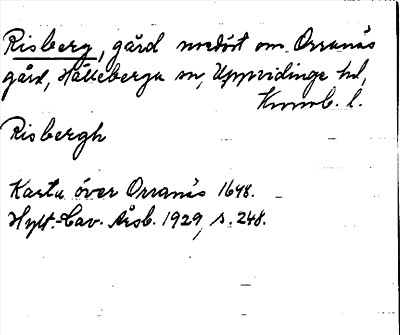 Risberg, gård nordöst om Orranäs
gård, Hälleberga sn, Uppvidinge hd,
Kronob. l.
Risbergh
Karta över Orranäs 1648.
Hylt.-Cav. Årsb. 1929, s. 248.